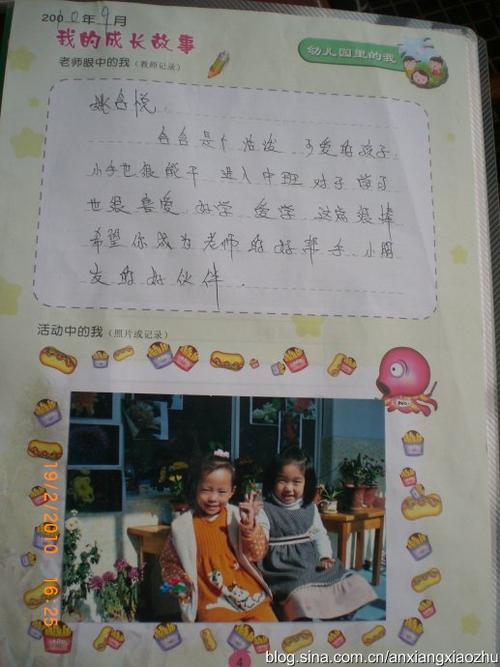 2010年9月
我的成长故事
幼儿园里的我
老师眼中的我（教师记录）
姚含悦
含含是个活泼 可爱的孩子
小手也很能干 进入中班 对子
也很喜爱 好学 爱学 这点很棒
希望你成为老师的好帮手 小朋
友的好伙伴.
活动中的我（照片或记录）
19/2/2010 16:25
4
blog.sina.com.cn/anxiangxiaozhu